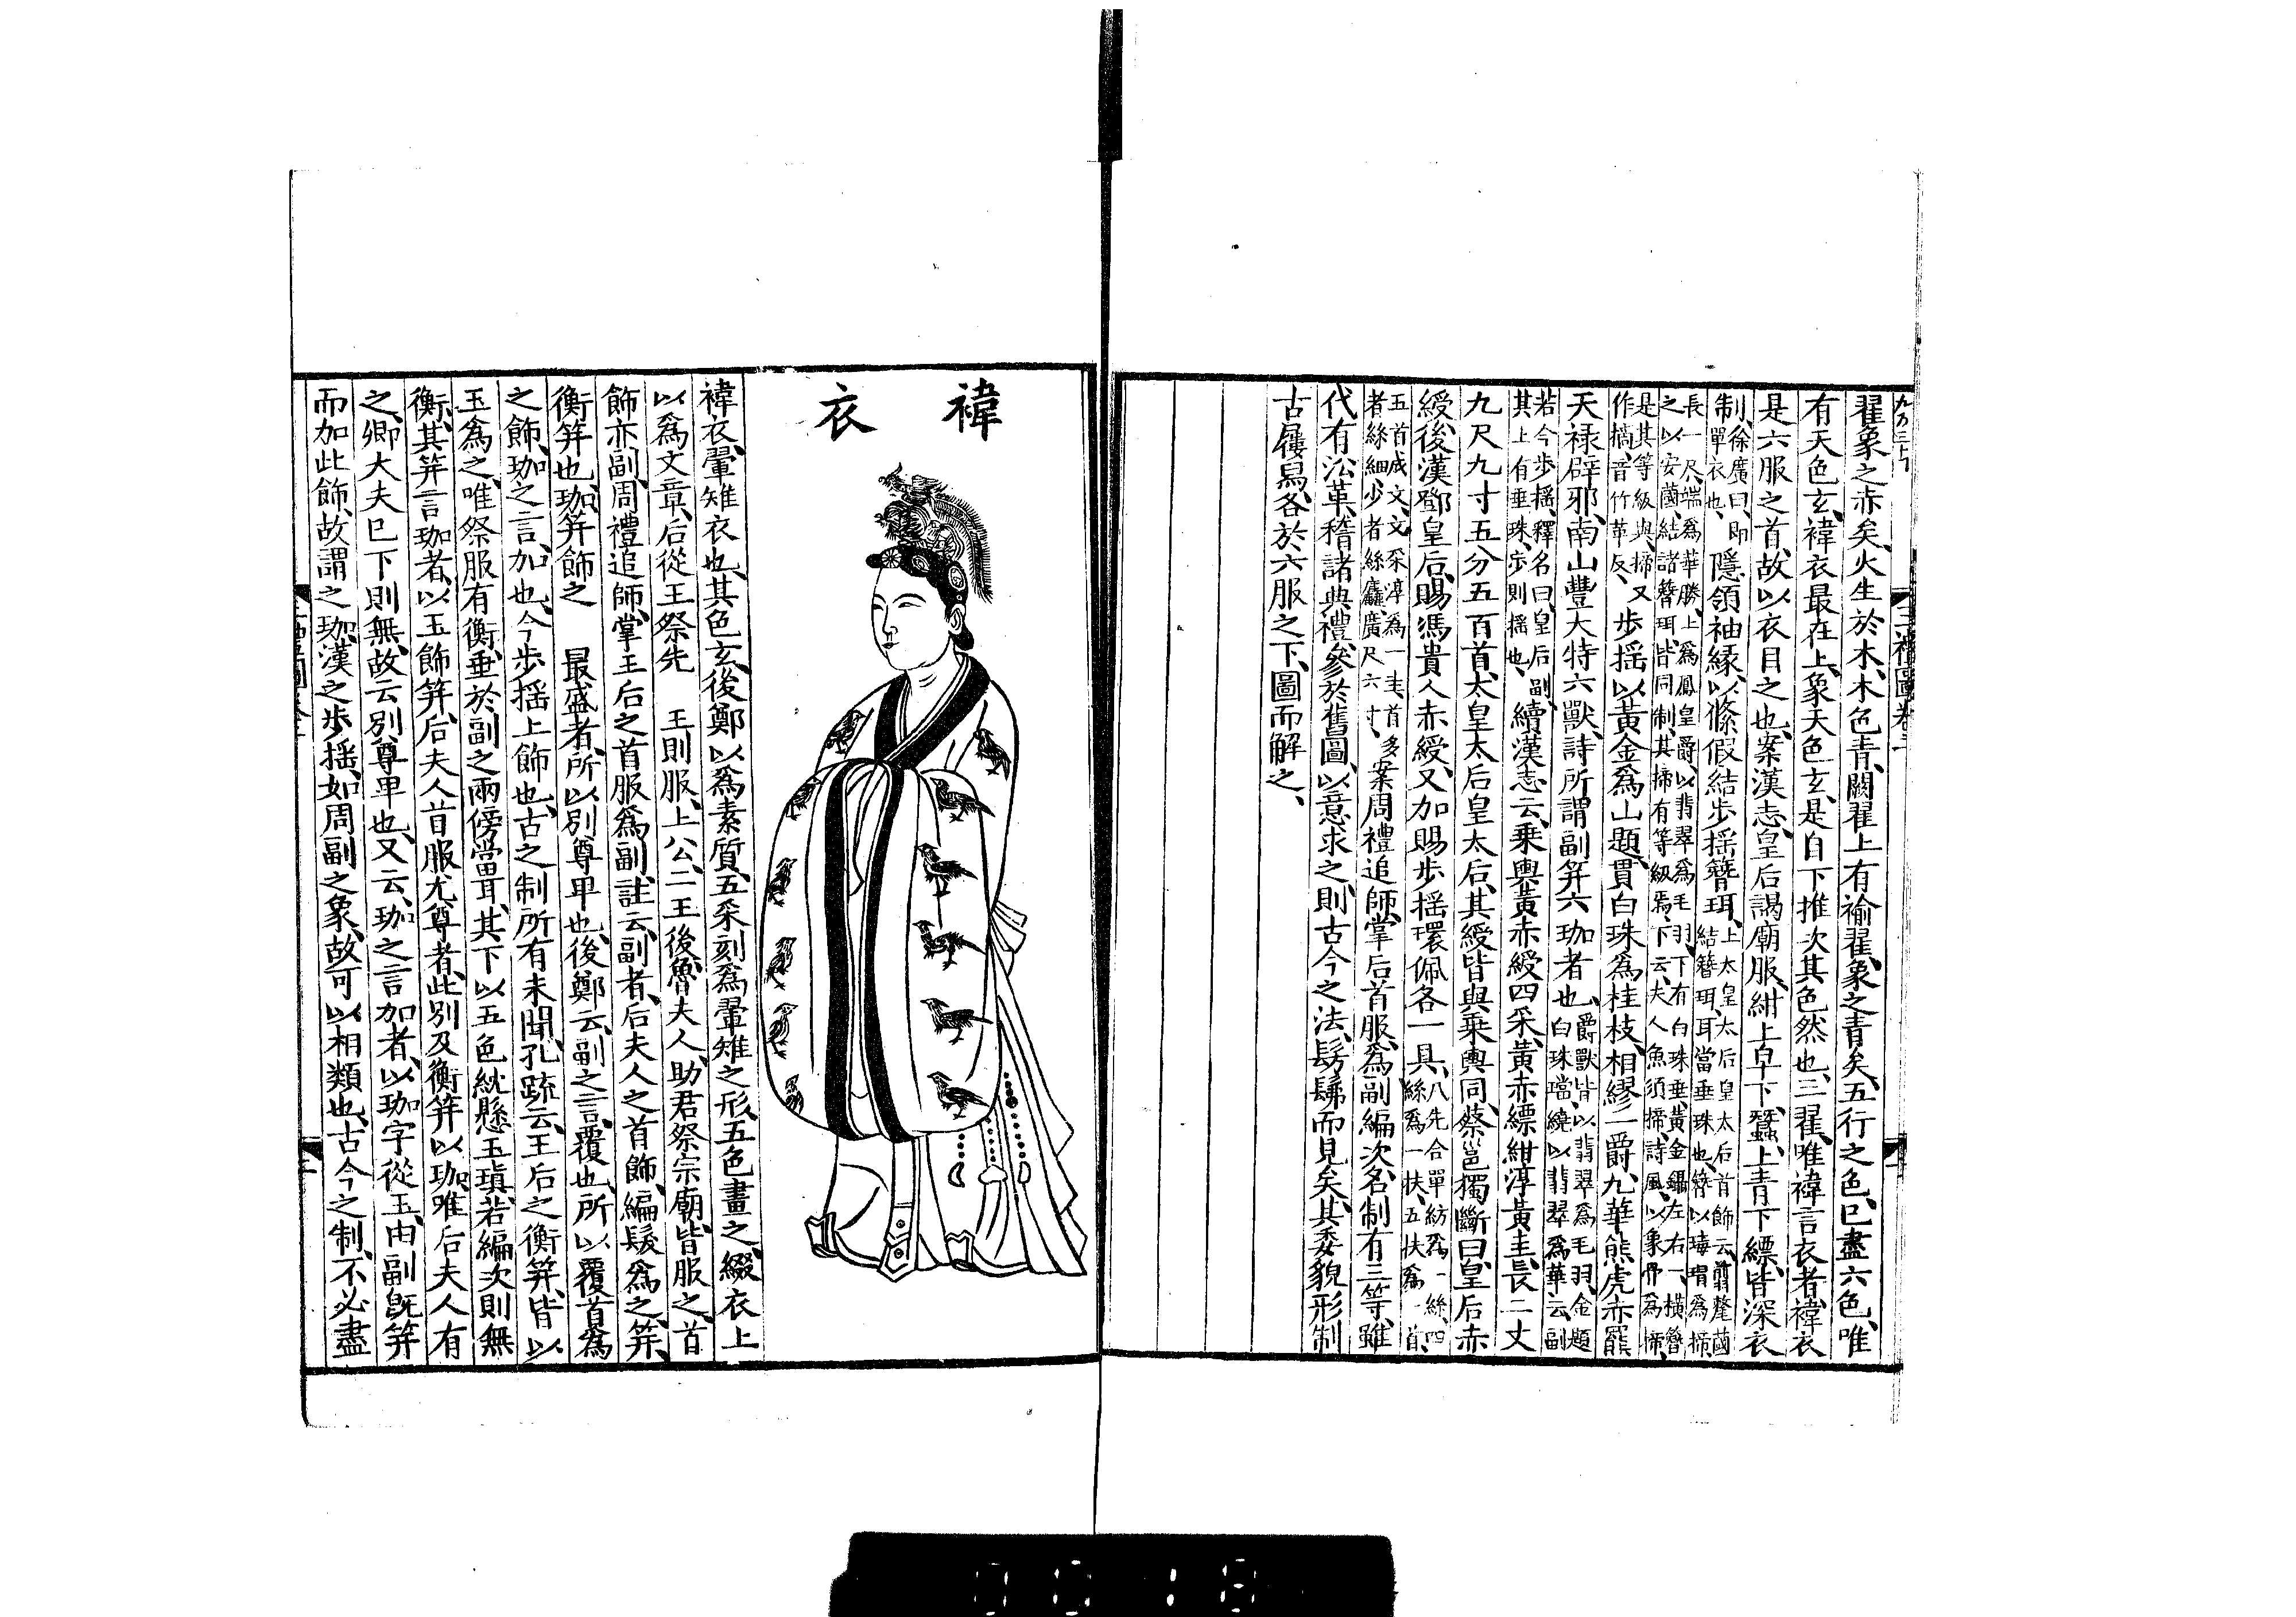 三禮圖卷二
翟象之赤矣火生於木木色青闕翟上有褕翟象之青矣五行之色已盡六色唯
有天色玄褘衣最在上象天色玄是自下推次其色然也三翟唯褘言衣者褘衣
是六服之首故以衣目之也案漢志皇后謁廟服紺上皁下蠶上青下縹皆深衣
制徐廣曰即單衣也隱領袖緣以絛假結步摇簪珥上太皇太后皇太后首飾云翦氂蔮
結簪珥耳當垂珠也簪以瑇瑁爲擿
長一尺端爲華勝上爲鳳皇爵以翡翠爲毛羽下有白珠垂黄金鑷左右一横簪
之以安蔮結諸簪珥皆同制其擿有等級焉下云夫人魚須擿詩風以象骨爲擿
是其等級與擿又作揥音竹革反步摇以黄金爲山題貫白珠爲桂枝相繆一爵九華熊虎赤羆
天禄辟邪南山豐大特六獸詩所謂副笄六珈者也爵獸皆以翡翠爲毛羽金題
白珠璫繞以翡翠爲華云副
若今步摇釋名曰皇后副
其上有垂珠步則摇也續漢志云乗輿黄赤綬四采黄赤縹紺淳黄圭長二丈
九尺九寸五分五百首太皇太后皇太后其綬皆與乗輿同蔡邕獨斷曰皇后赤
綬後漢鄧皇后賜馮貴人赤綬又加賜步摇環佩各一具八先合單紡爲一絲四
絲爲一扶五扶爲一首
五首成文文采淳爲一圭首多
者絲細少者絲麤廣尺六寸案周禮追師掌后首服爲副編次名制有三等雖
代有沿革稽諸典禮參於舊圖以意求之則古今之法髣髴而見矣其委貌形制
古屨舄各於六服之下圖而解之
褘衣
褘衣翬雉衣也其色玄後鄭以爲素質五采刻爲翬雉之形五色畫之綴衣上
以爲文章后從王祭先 王則服上公二王後魯夫人助君祭宗廟皆服之首
飾亦副周禮追師掌王后之首服爲副註云副者后夫人之首飾編髮爲之笄
衡笄也珈笄飾之 最盛者所以别尊卑也後鄭云副之言覆也所以覆首爲
之飾珈之言加也今步摇上飾也古之制所有未聞孔疏云王后之衡笄皆以
玉爲之唯祭服有衡垂於副之兩傍當耳其下以五色紞懸玉瑱若編次則無
衡其笄言珈者以玉飾笄后夫人首服尤尊者此别及衡笄以珈唯后夫人有
之卿大夫已下則無故云别尊卑也又云珈之言加者以珈字從玉由副旣笄
而加此飾故謂之珈漢之步摇如周副之象故可以相類也古今之制不必盡
0018